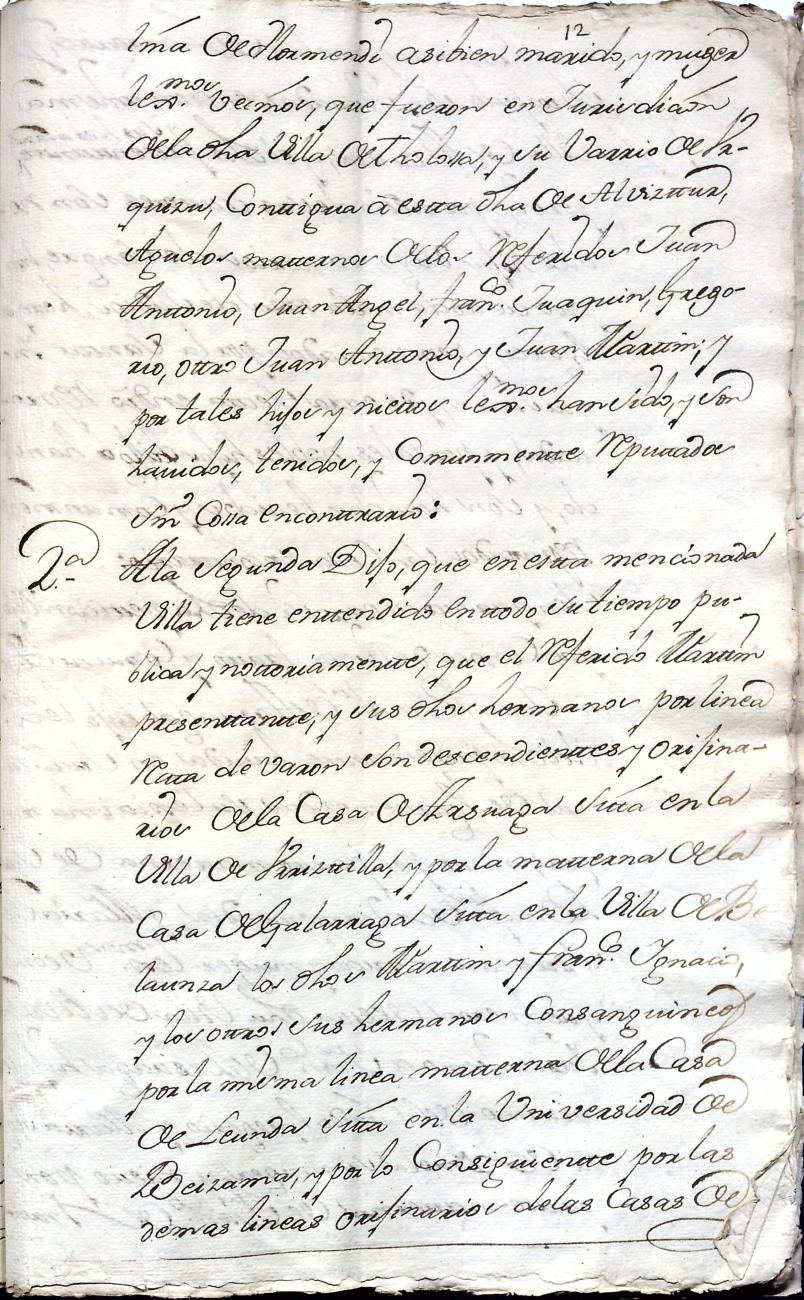 12
lina de Hormendi asibien marido, y muger
lexmos. vecinos, que fueron en Jurisdicion
dela dha Villa de tholossa, y su Varrio de Vr-
quizu, Conttigua à estta dha de Alvizttur,
Aguelos matternos delos Referidos Juan
Anttonio, Juan Angel, franco. Juaquin, Grego-
rio, ottro Juan Anttonio, y Juan Marttin; y
por tales hijos y niettos lexmos. han sido, y son
hauidos, tenidos, y Comunmentte Reputtados
sin Cossa enconttrario:
2.a Ala Segunda Dijo, que en estta mencionada
Villa tiene enttendido en ttodo su tiempo pu-
blica y nottoriamentte, que el Referido Marttin
presenttantte, y sus dhos hermanos por linea
Rectta de varon son descendienttes y orijina-
rios dela Casa de Arsuaga sitta en la
Villa de Vrrizttilla, y por la matterna dela
Casa de Galarraga sitta en la Villa de Be
launza los dhos Marttin y franco. Ignacio,
y los ottros sus hermanos Consanguineos
por la misma linea matterna dela Casa
de Leunda sitta en la Universidad de
Beizama, y por lo Consiguientte por las
demas lineas orijinarios delas Casas de